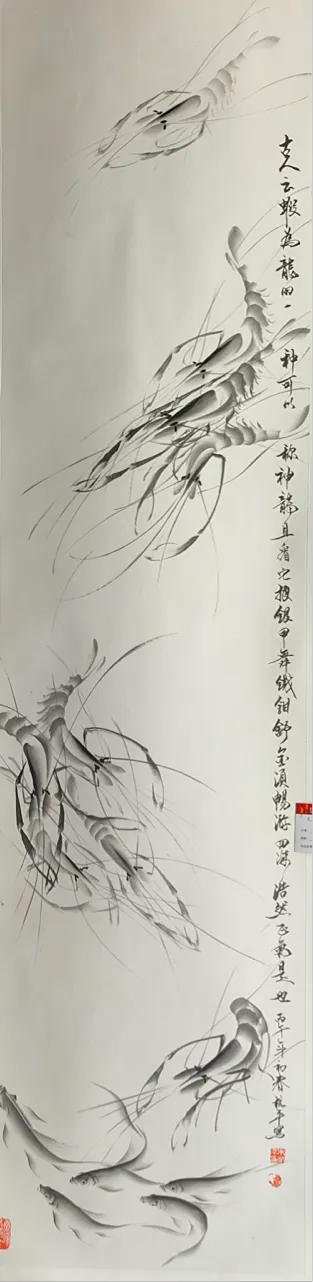 古人云蝦為龍的一神可以称神龍且看它披銀甲舞鐵鉗舒金須暢游四海浩然正氣是也丙午年初春